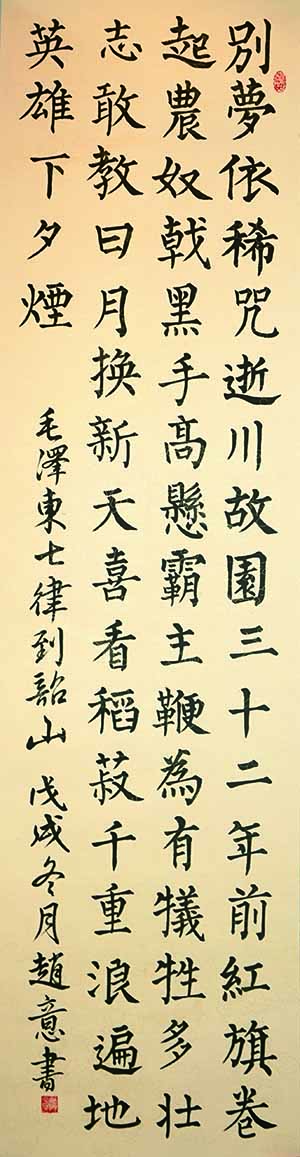 別夢依稀咒逝川故園三十二年前紅旗卷
起農奴戟黑手高懸霸主鞭為有犧牲多壯
志敢教日月換新天喜看稻菽千重浪遍地
英雄下夕煙
毛澤東七律到韶山 戊戌冬月趙意書